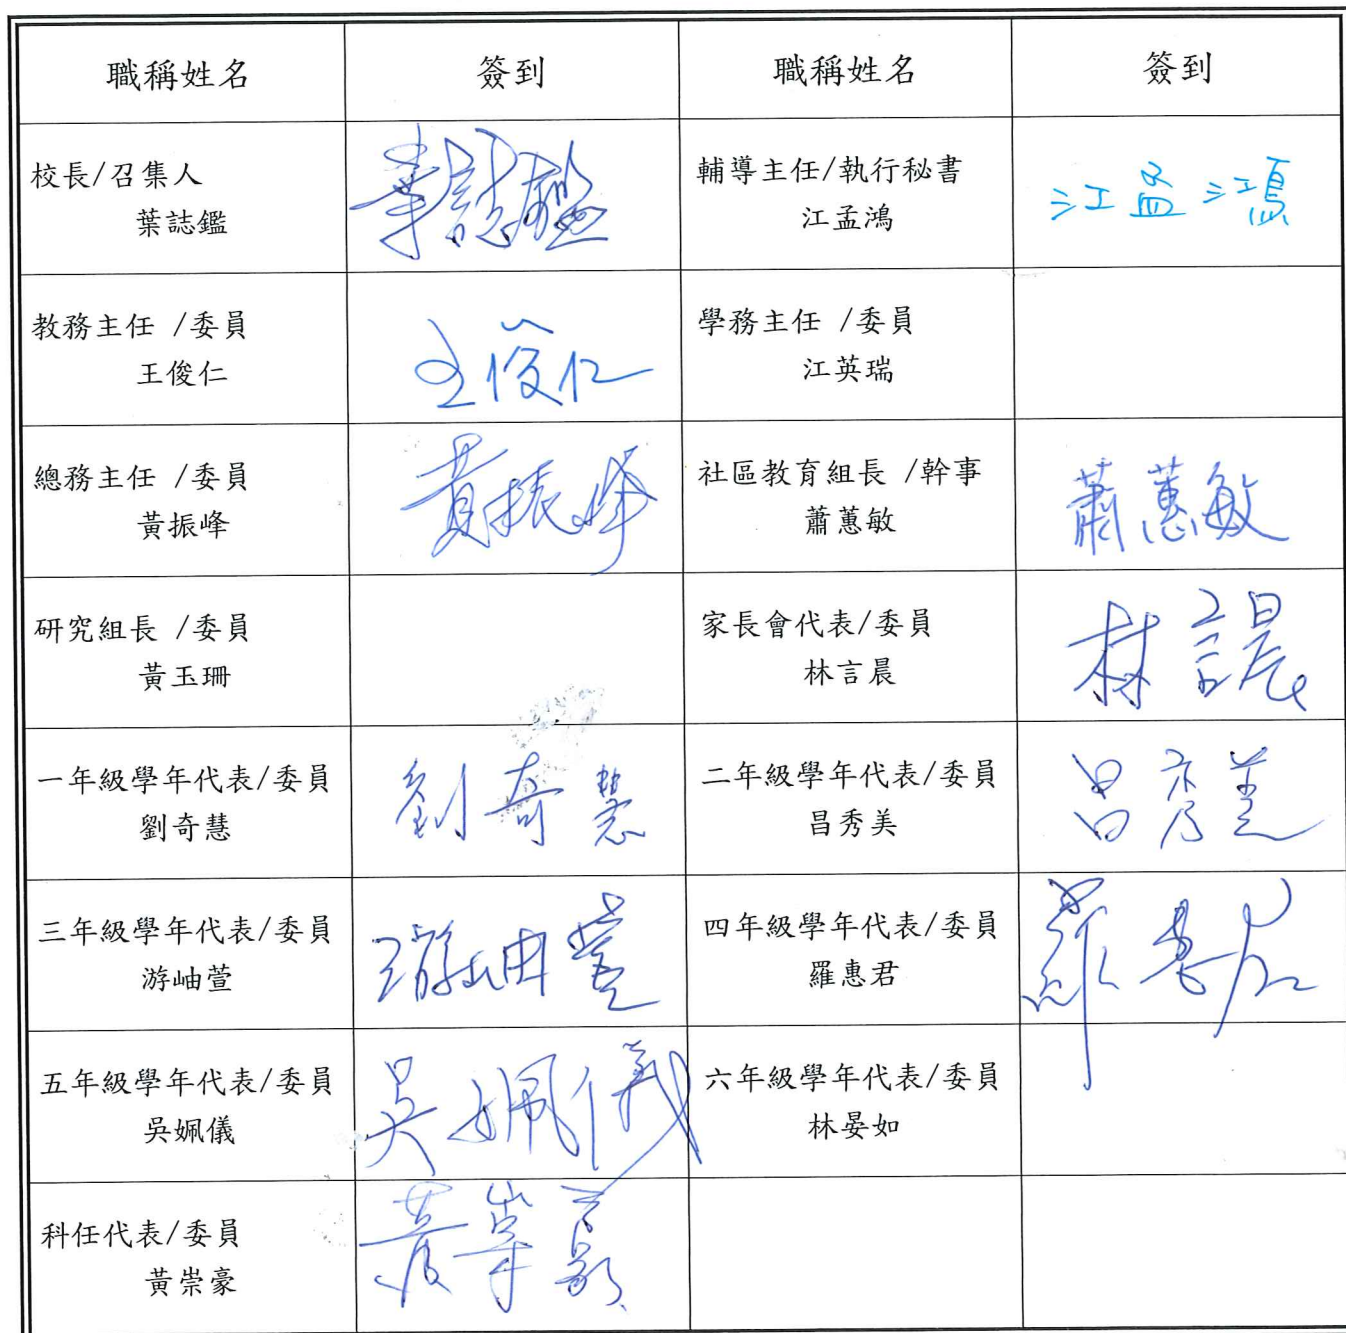 職稱姓名 簽到 職稱姓名 簽到
校長/召集人
葉誌鑑
葉誌鑑
輔導主任/執行秘書
江孟鴻
江孟鴻
教務主任 /委員
王俊仁
王俊仁
學務主任 /委員
江英瑞
總務主任 /委員
黃振峰
黃振峰
社區教育組長 /幹事
蕭蕙敏
蕭蕙敏
研究組長 /委員
黃玉珊
家長會代表/委員
林言晨
林言晨
一年級學年代表/委員
劉奇慧
劉奇慧
二年級學年代表/委員
昌秀美
昌秀美
三年級學年代表/委員
游岫萱
游岫萱
四年級學年代表/委員
羅惠君
羅惠君
五年級學年代表/委員
吳姵儀
吳姵儀
六年級學年代表/委員
林晏如
科任代表/委員
黃崇豪
黃崇豪